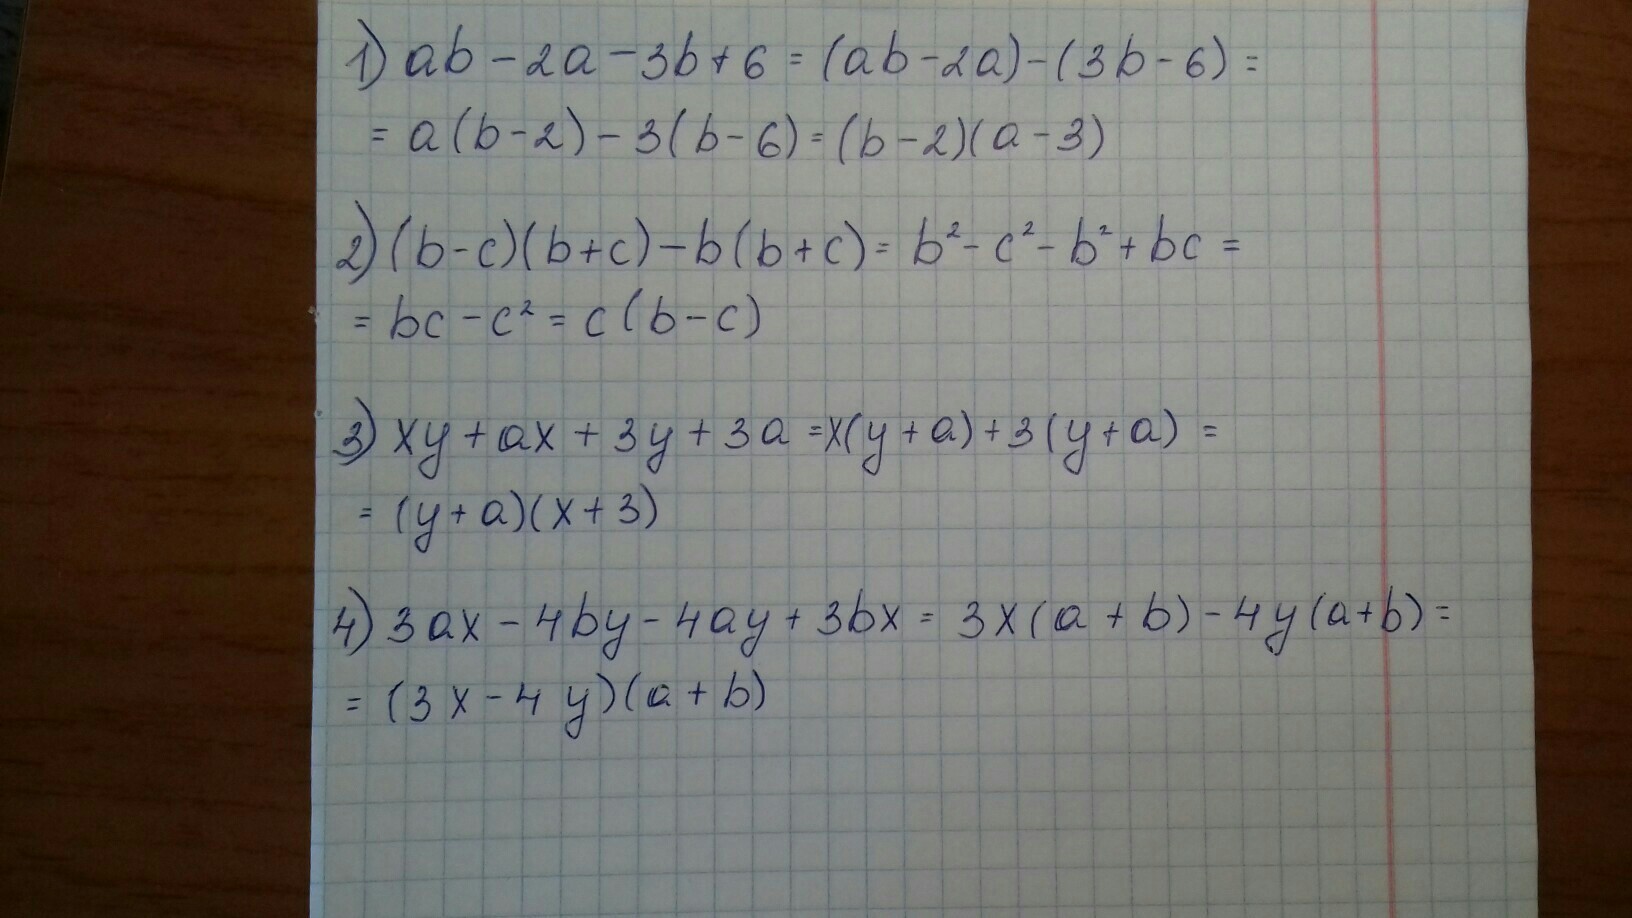 1) ab - 2a - 3b + 6 = (ab - 2a) - (3b - 6) =
= a(b - 2) - 3(b - 6) = (b - 2)(a - 3)
2) (b - c)(b + c) - b(b + c) = b² - c² - b² + bc =
= bc - c² = c(b - c)
3) xy + ax + 3y + 3a = x(y + a) + 3(y + a) =
= (y + a)(x + 3)
4) 3ax - 4by - 4ay + 3bx = 3x(a + b) - 4y(a + b) =
= (3x - 4y)(a + b)